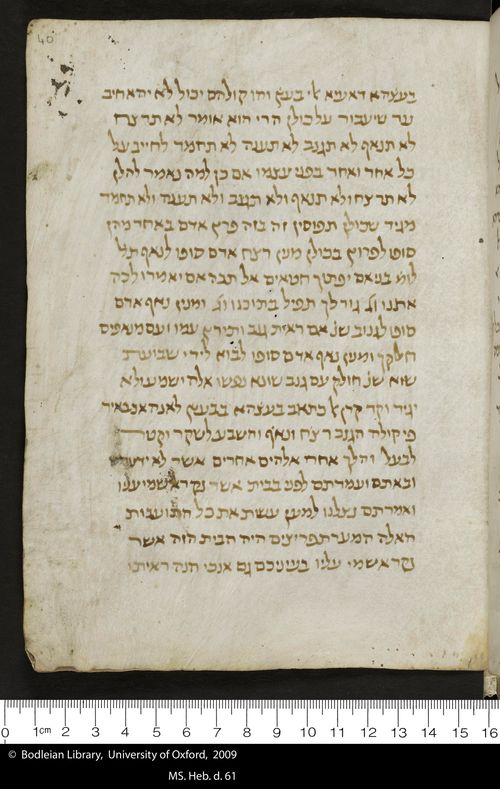 40
בעצהא דאעיא אלי בעץ והו קולהם יכול לא יהא חייב
עד שיעבור על כולן הרי הוא אומר לא תרצח
לא תנאף לא תגנב לא תענה לא תחמד לחייב על
כל אחד ואחד בפני עצמו אם כן למה נאמר להלן
לא תרצח ולא תנאף ולא תגנב ולא תענה ולא תחמד
מגיד שכולן תפוסין זה בזה פרץ אדם באחד מהן
סופו לפרוץ בכולן מנין רצח אדם סופו לנאף תל
לומ בני אם יפתוך חטאים אל תבה אם יאמרו לכה
אתנו וג גורלך תפיל בתוכנו וג ומנין נאף אדם
סופו לגנוב שנ אם ראית גנב ותירץ עמו ועם מנאפים
חלקך ומנין נאף אדם סופו לבוא לידי שבועת
שוא שנ חולק עם גנב שונא נפשו אלה ישמע ולא
יגיד וקד קרן אל כתאב בעצהא בבעץ לאנהא נטאיר
פי קולה הגנב רצח ונאף והשבע לשקר וקטר
לבעל והלך אחרי אלהים אחרים אשר לא ידעתם
ובאתם ועמדתם לפני בבית אשר נקרא שמי עליו
ואמרתם נצלנו למען עשות את כל התועבות
האלה המערת פריצים היה הבית הזה אשר
נקרא שמי עליו בעיניכם גם אנכי הנה ראיתי
0 1cm 2 3 4 5 6 7 8 9 10 11 12 13 14 15 16
© Bodleian Library, University of Oxford, 2009
MS. Heb. d. 61